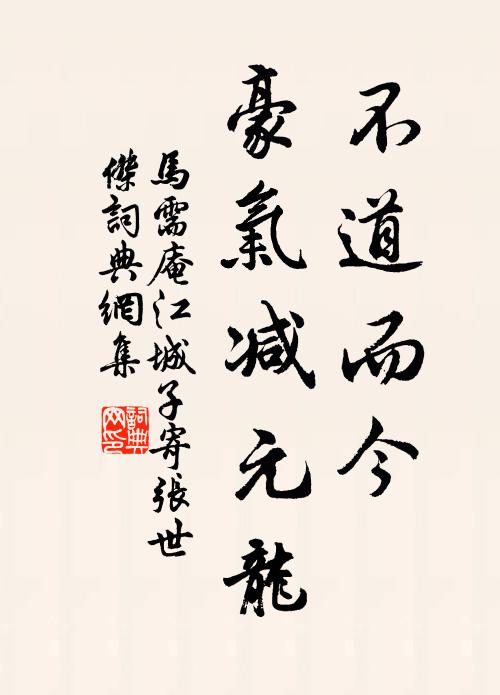 不道而今
豪氣減元龍
馬需庵江城子寄張世
傑詞典網集
詞典网印